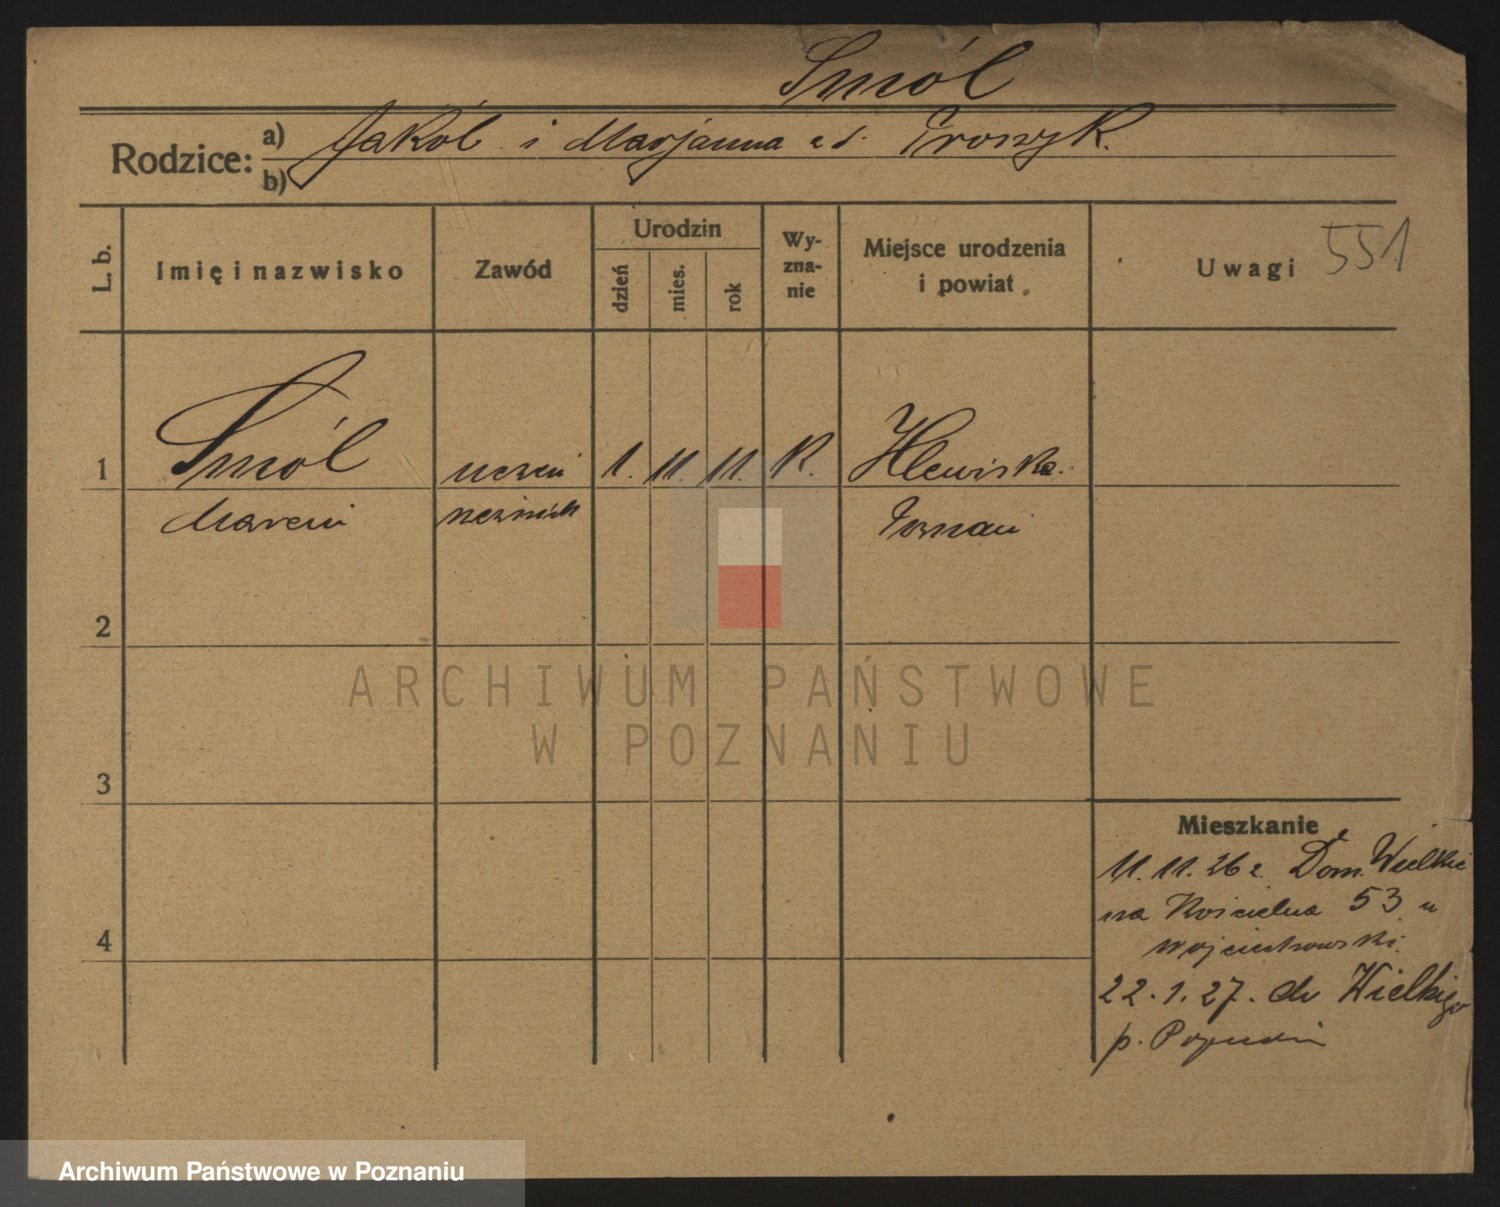 Smól
Rodzice: a) Jakób i Marjanna z d.
b)
L. b. Imię i nazwisko Zawód Urodzin dzień mies. rok Wy-zna-nie Miejsce urodzenia i powiat Uwagi 551
1 Smól uczeń 1. 11. 11. K. Plewiska.
Marcin rzeźnick Poznań
2
3
4
Mieszkanie
11.11.26 z Dom. Wielkie
na Kościelna 53 u
Wojciechowski.
22.1.27. do Wielkiego
p. Poznań
ARCHIWUM PAŃSTWOWE
W POZNANIU
Archiwum Państwowe w Poznaniu